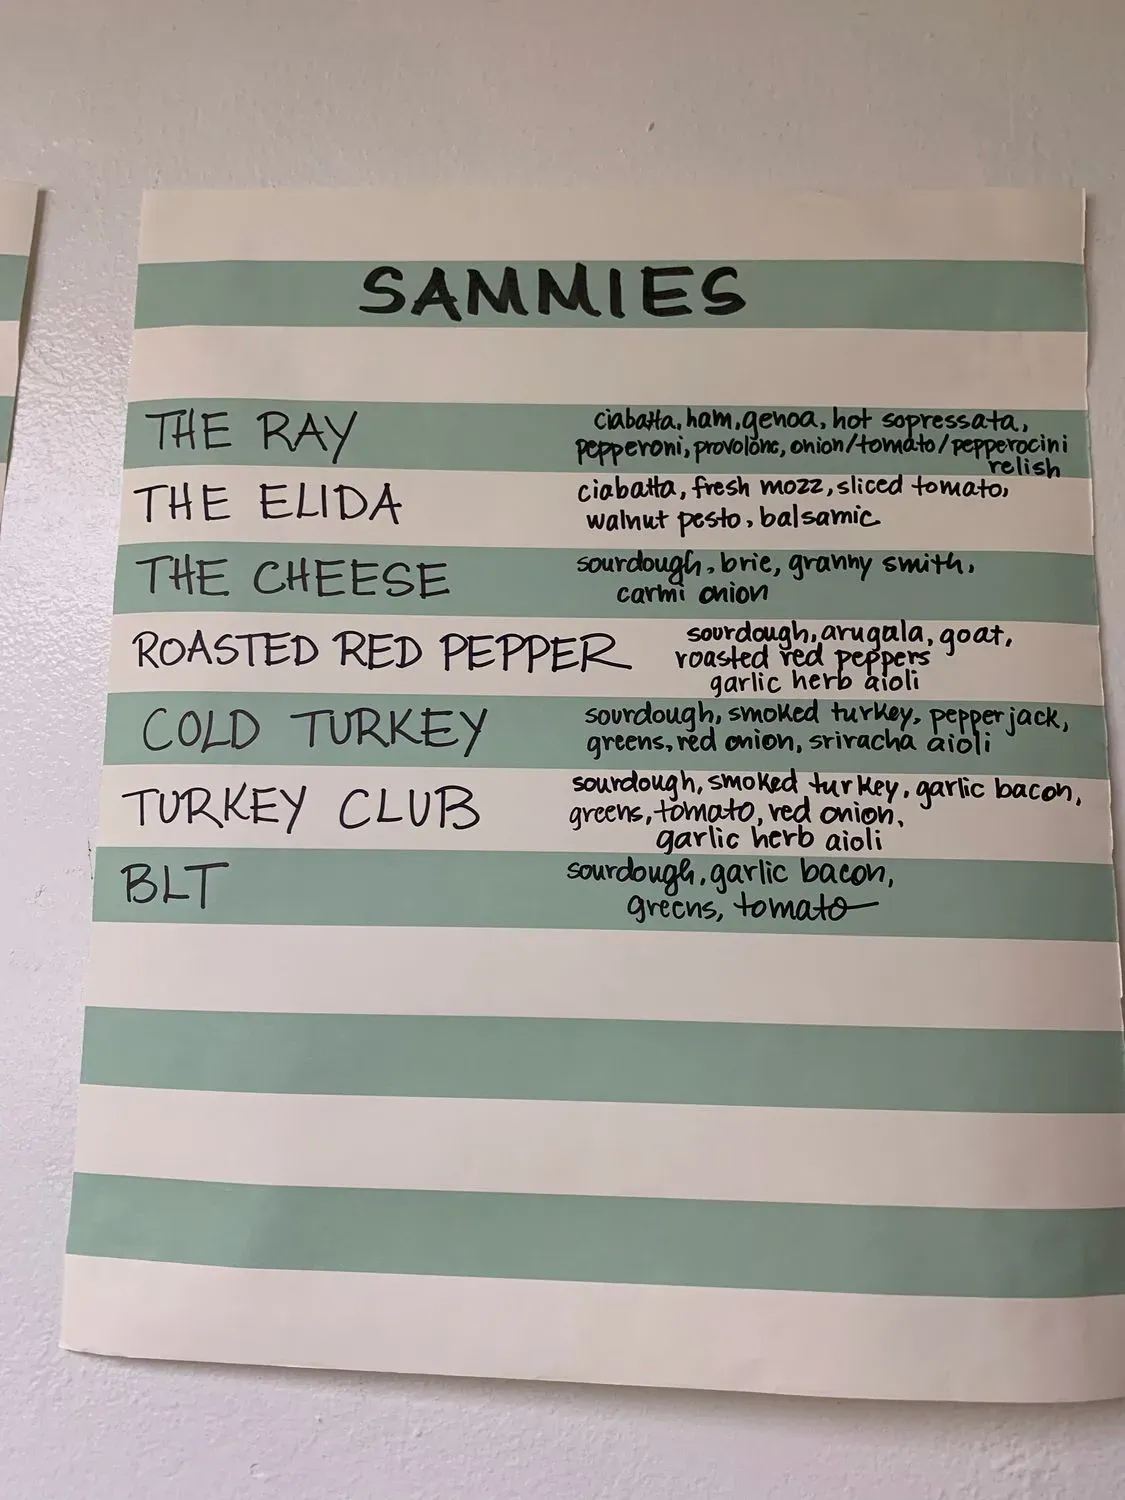 SAMMIES
THE RAY
ciabatta, ham, genoa, hot sopressata,
pepperoni, provolone, onion/tomato/pepperocini
relish
THE ELIDA
ciabatta, fresh mozz, sliced tomato,
walnut pesto, balsamic
THE CHEESE
sourdough, brie, granny smith,
carmi onion
ROASTED RED PEPPER
sourdough, arugala, goat,
roasted red peppers
garlic herb aioli
COLD TURKEY
sourdough, smoked turkey, pepperjack,
greens, red onion, sriracha aioli
TURKEY CLUB
sourdough, smoked turkey, garlic bacon,
greens, tomato, red onion,
garlic herb aioli
BLT
sourdough, garlic bacon,
greens, tomato